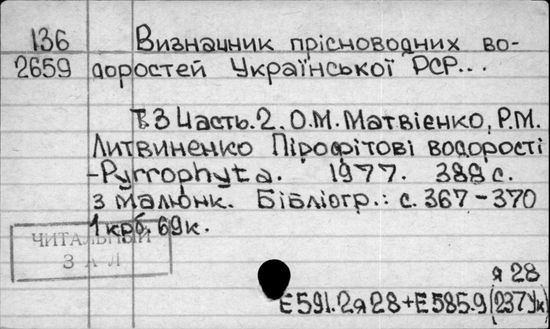 136 Визначник прісноводних во-
2659 доростей Української РСР...
Т.3 Часть.2. О.М. Матвієнко, Р.М.
Литвиненко Пірофітові водорості
-Pyrrophyta. 1977. 388 с.
з малюнк. Бібліогр.: с. 367-370
1 крб. 69к.
ЧИТАЛЬНЫЙ
ЗАЛ
я 28
Е591.2я28+Е585.9(237Ук)